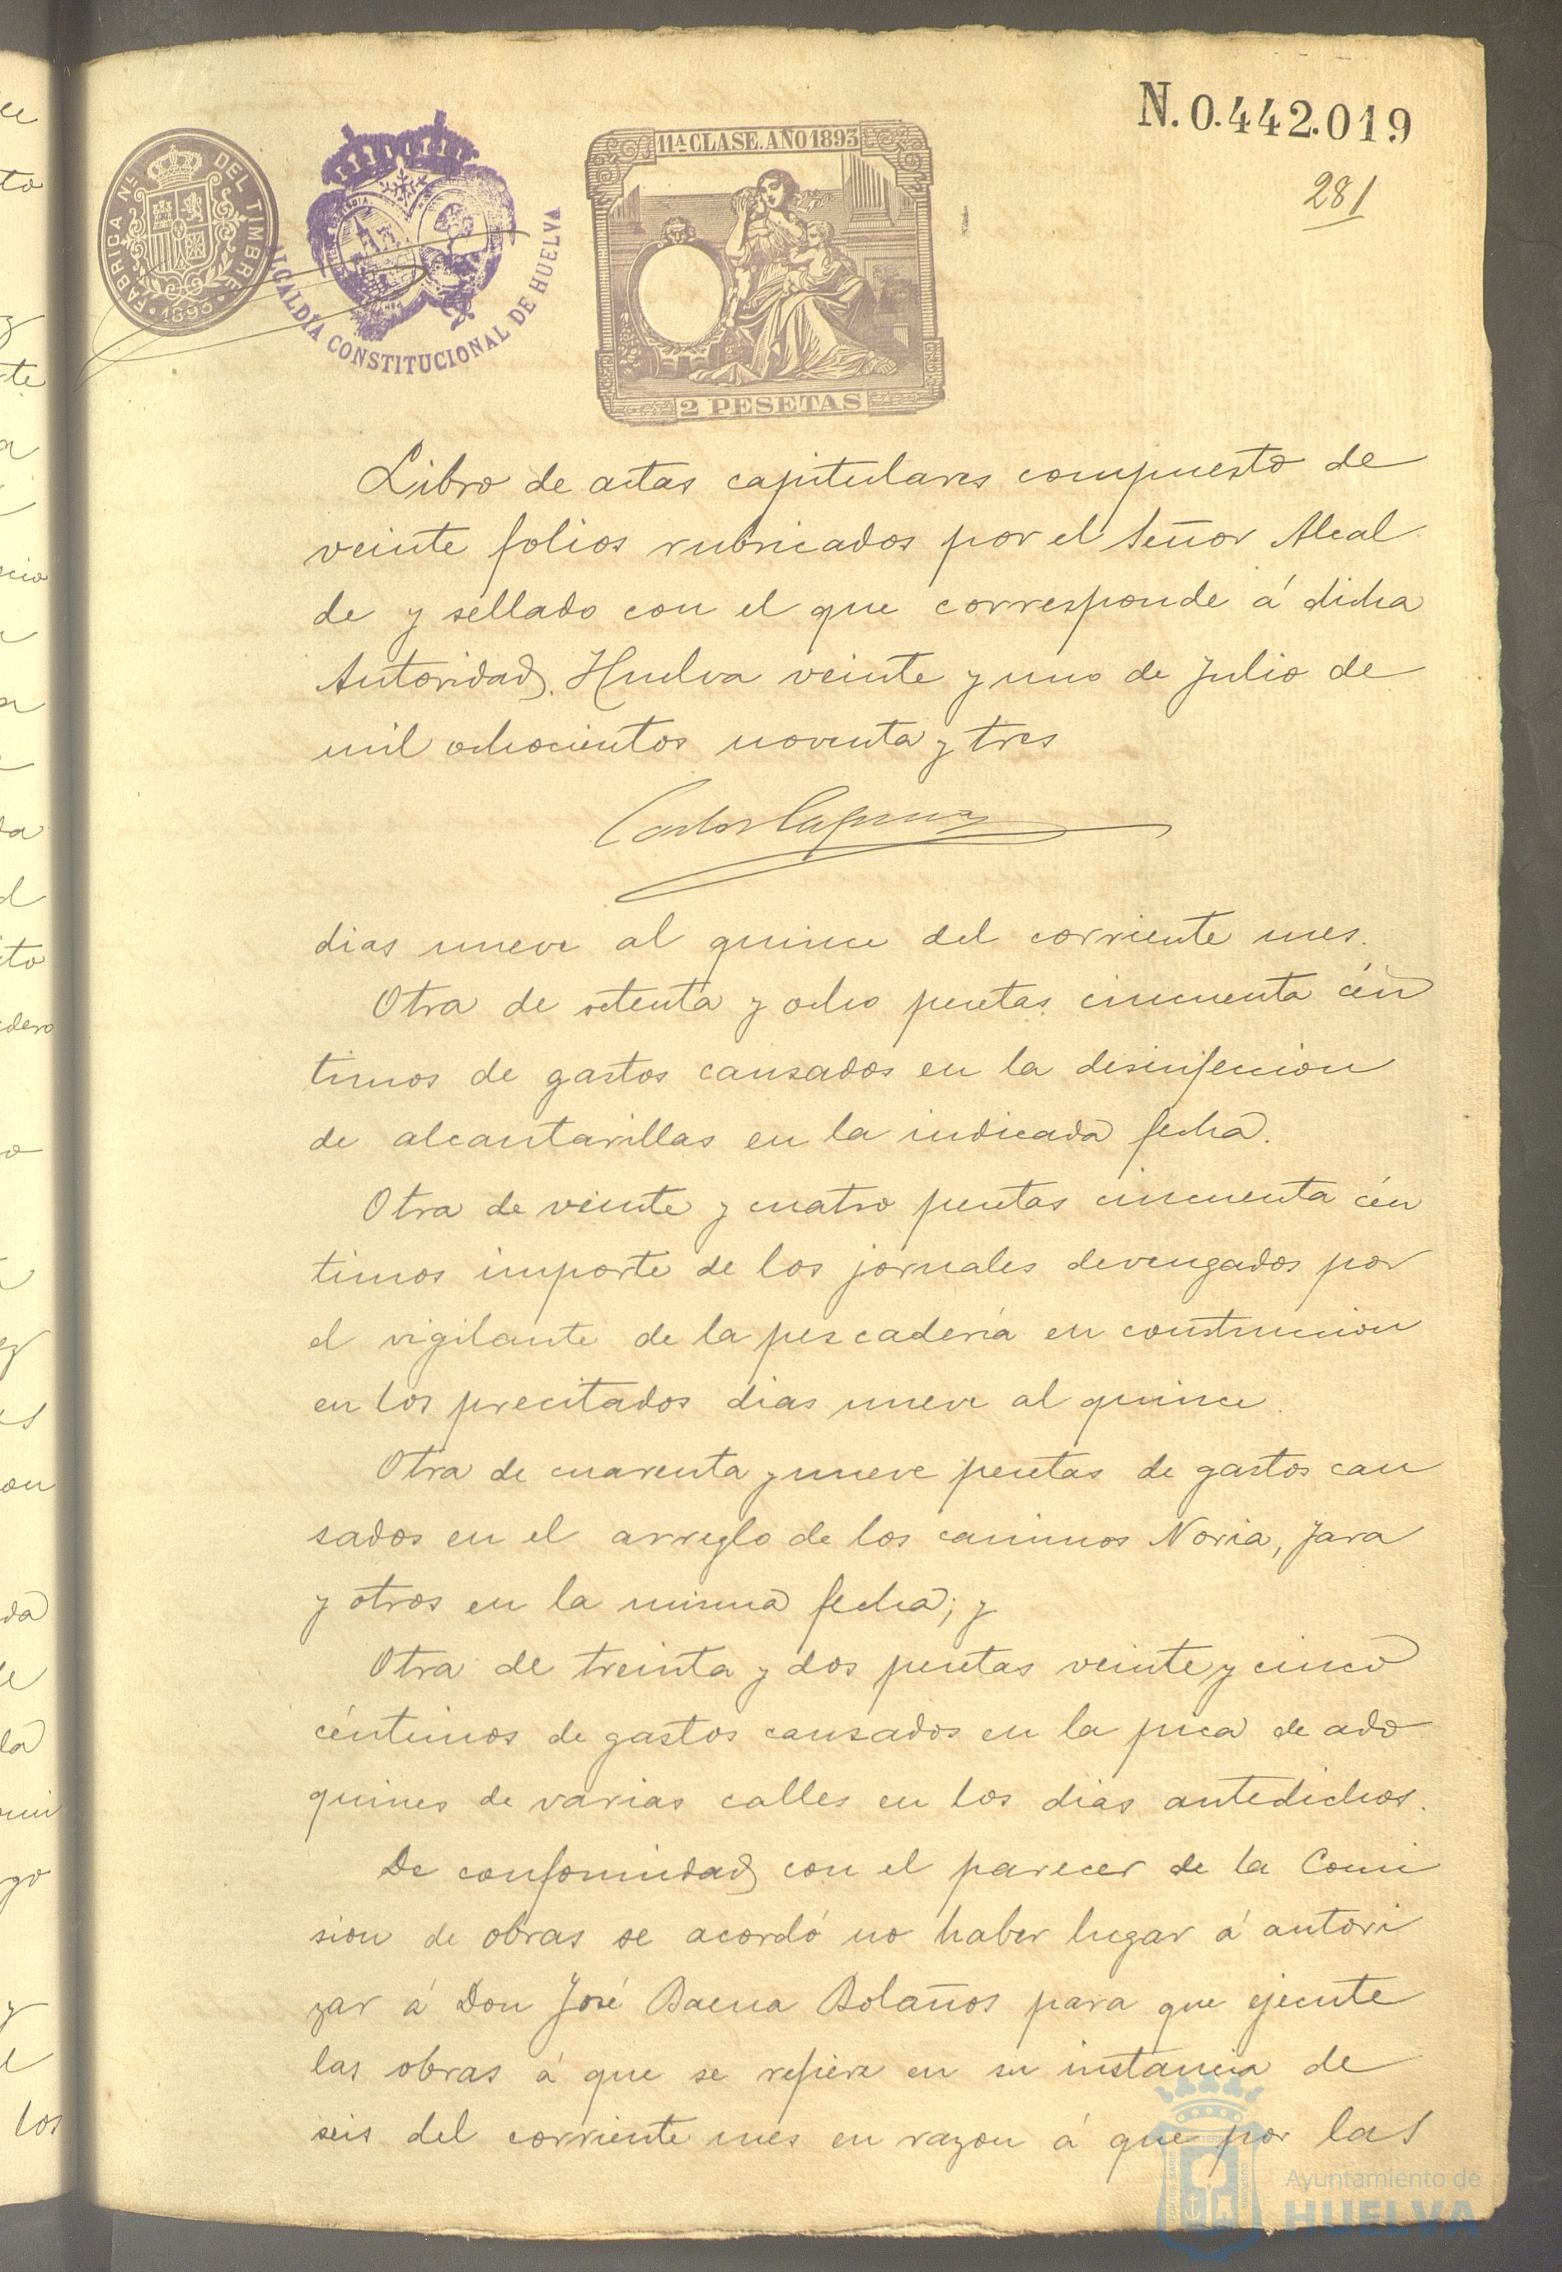 N. 0.442.019
281
FABRICA Nal DEL TIMBRE
1893
ALCALDÍA CONSTITUCIONAL DE HUELVA
11ª CLASE. AÑO 1893
2 PESETAS
Libro de actas capitulares compuesto de
veinte folios rubricados por el Señor Alcal
de y sellado con el que corresponde á dicha
Autoridad. Huelva veinte y uno de Julio de
mil ochocientos noventa y tres
Carlos
dias nueve al quince del corriente mes.
Otra de setenta y ocho pesetas cincuenta cén
timos de gastos causados en la desinfeccion
de alcantarillas en la indicada fecha.
Otra de veinte y cuatro pesetas cincuenta cén
timos importe de los jornales devengados por
el vigilante de la pescadería en construccion
en los precitados dias nueve al quince.
Otra de cuarenta y nueve pesetas de gastos cau
sados en el arreglo de los caminos Noria, Jara
y otros en la misma fecha; y
Otra de treinta y dos pesetas veinte y cinco
céntimos de gastos causados en la pica de ado
quines de varias calles en los dias antedichos.
De conformidad con el parecer de la Comi
sion de obras se acordó no haber lugar á autori
zar á Don José Baena Bolaños para que ejecute
las obras á que se refiere en su instancia de
seis del corriente mes en razon á que por las
Ayuntamiento de
HUELVA